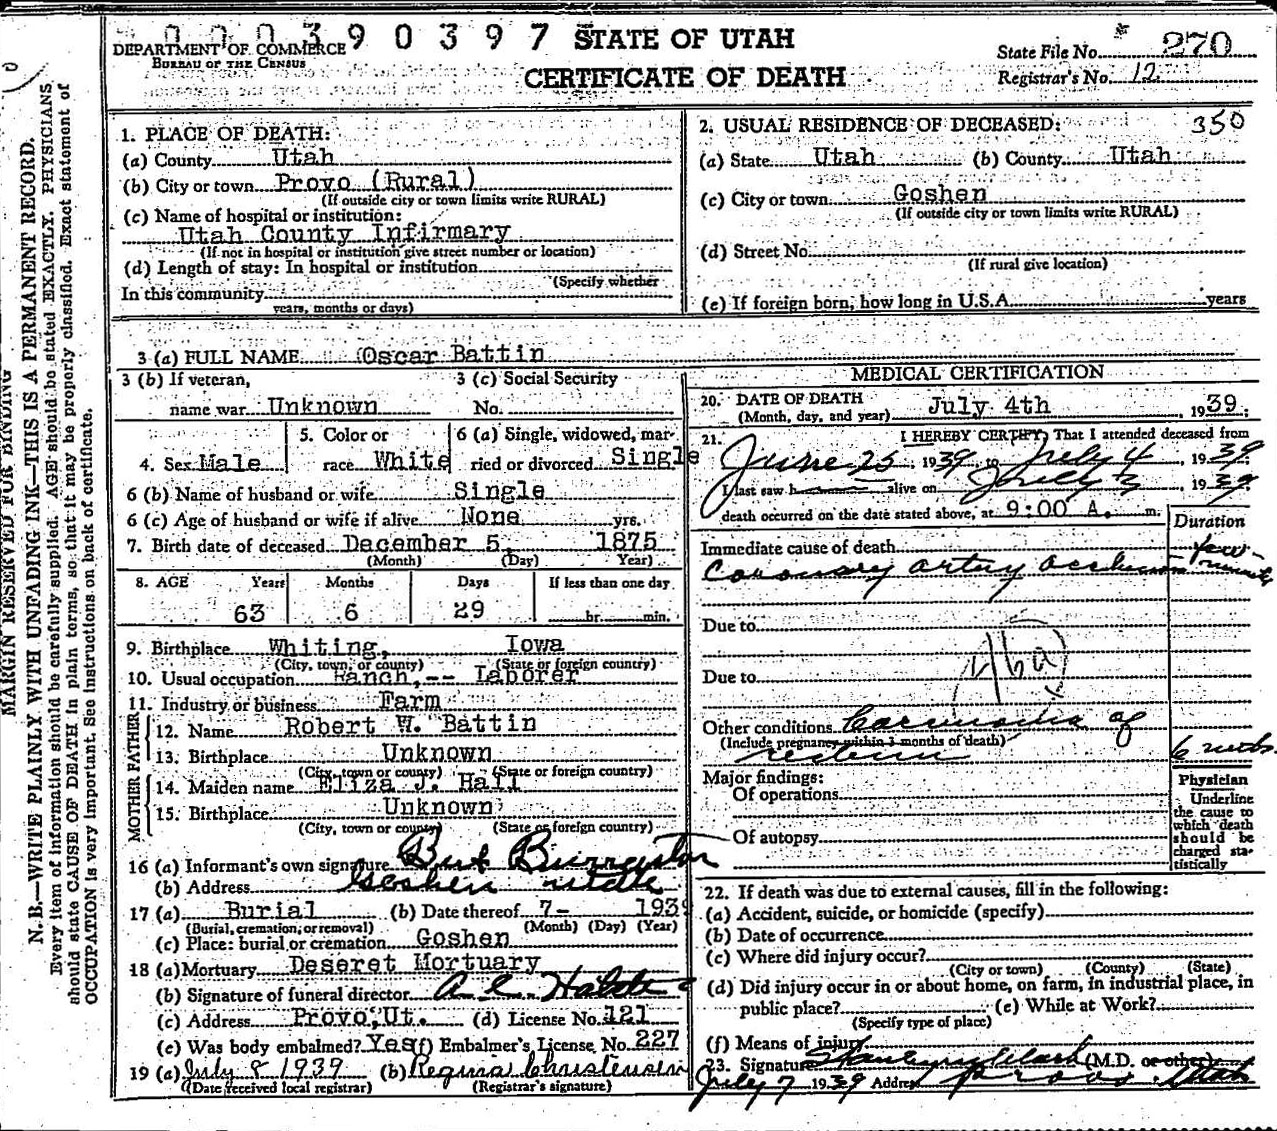 000390397 STATE OF UTAH
DEPARTMENT OF COMMERCE
BUREAU OF THE CENSUS
CERTIFICATE OF DEATH
State File No. 270
Registrar's No. 12
MARGIN RESERVED FOR BINDING
N. B.—WRITE PLAINLY WITH UNFADING INK—THIS IS A PERMANENT RECORD.
Every item of information should be carefully supplied. AGE should be stated EXACTLY. PHYSICIANS
should state CAUSE OF DEATH in plain terms, so that it may be properly classified. Exact statement of
OCCUPATION is very important. See instructions on back of certificate.
1. PLACE OF DEATH:
(a) County Utah
(b) City or town Provo (Rural)
(If outside city or town limits write RURAL)
(c) Name of hospital or institution:
Utah County Infirmary
(If not in hospital or institution give street number or location)
(d) Length of stay: In hospital or institution
(Specify whether
In this community
years, months or days)
2. USUAL RESIDENCE OF DECEASED: 350
(a) State Utah (b) County Utah
(c) City or town Goshen
(If outside city or town limits write RURAL)
(d) Street No.
(If rural give location)
(e) If foreign born, how long in U.S.A. years
3 (a) FULL NAME Oscar Battin
3 (b) If veteran,
name war Unknown
3 (c) Social Security
No.
4. Sex Male
5. Color or
race White
6 (a) Single, widowed, mar-
ried or divorced Single
6 (b) Name of husband or wife Single
6 (c) Age of husband or wife if alive None yrs.
7. Birth date of deceased December 5, 1875
(Month) (Day) Year)
8. AGE Years Months Days If less than one day
63 6 29 hr. min.
9. Birthplace Whiting, Iowa
(City, town, or county) (State or foreign country)
10. Usual occupation Ranch,-- Laborer
11. Industry or business Farm
FATHER
12. Name Robert W. Battin
13. Birthplace Unknown
(City, town or county) (State or foreign country)
MOTHER
14. Maiden name Eliza J. Hall
15. Birthplace Unknown
(City, town or county) (State or foreign country)
16 (a) Informant's own signature Bert
(b) Address Goshen Utah
17 (a) Burial (b) Date thereof 7- 1939
(Burial, cremation, or removal) (Month) (Day) (Year)
(c) Place: burial or cremation Goshen
18 (a) Mortuary Deseret Mortuary
(b) Signature of funeral director
(c) Address Provo, Ut. (d) License No. 121
(e) Was body embalmed? Yes (f) Embalmer's License No. 227
19 (a) July 8 1939 (b) Regina Christensen
(Date received local registrar) (Registrar's signature)
MEDICAL CERTIFICATION
20. DATE OF DEATH
(Month, day, and year) July 4th, 1939;
21. I HEREBY CERTIFY, That I attended deceased from
June 25, 1939 to July 4, 1939
I last saw h alive on July 3, 1939
death occurred on the date stated above, at 9:00 A. m.
Duration
Immediate cause of death few
Coronary artery occlusion minutes
Due to
Due to
Other conditions Carcinoma of
(Include pregnancy within 3 months of death)
rectum 6 mths.
Major findings:
Of operations
Of autopsy
Physician
Underline
the cause to
which death
should be
charged sta-
tistically
22. If death was due to external causes, fill in the following:
(a) Accident, suicide, or homicide (specify)
(b) Date of occurrence
(c) Where did injury occur?
(City or town) (County) (State)
(d) Did injury occur in or about home, on farm, in industrial place, in
public place? (e) While at Work?
(Specify type of place)
(f) Means of injury
23. Signature Clark (M.D. or other)
July 7 1939 Address Provo, Utah